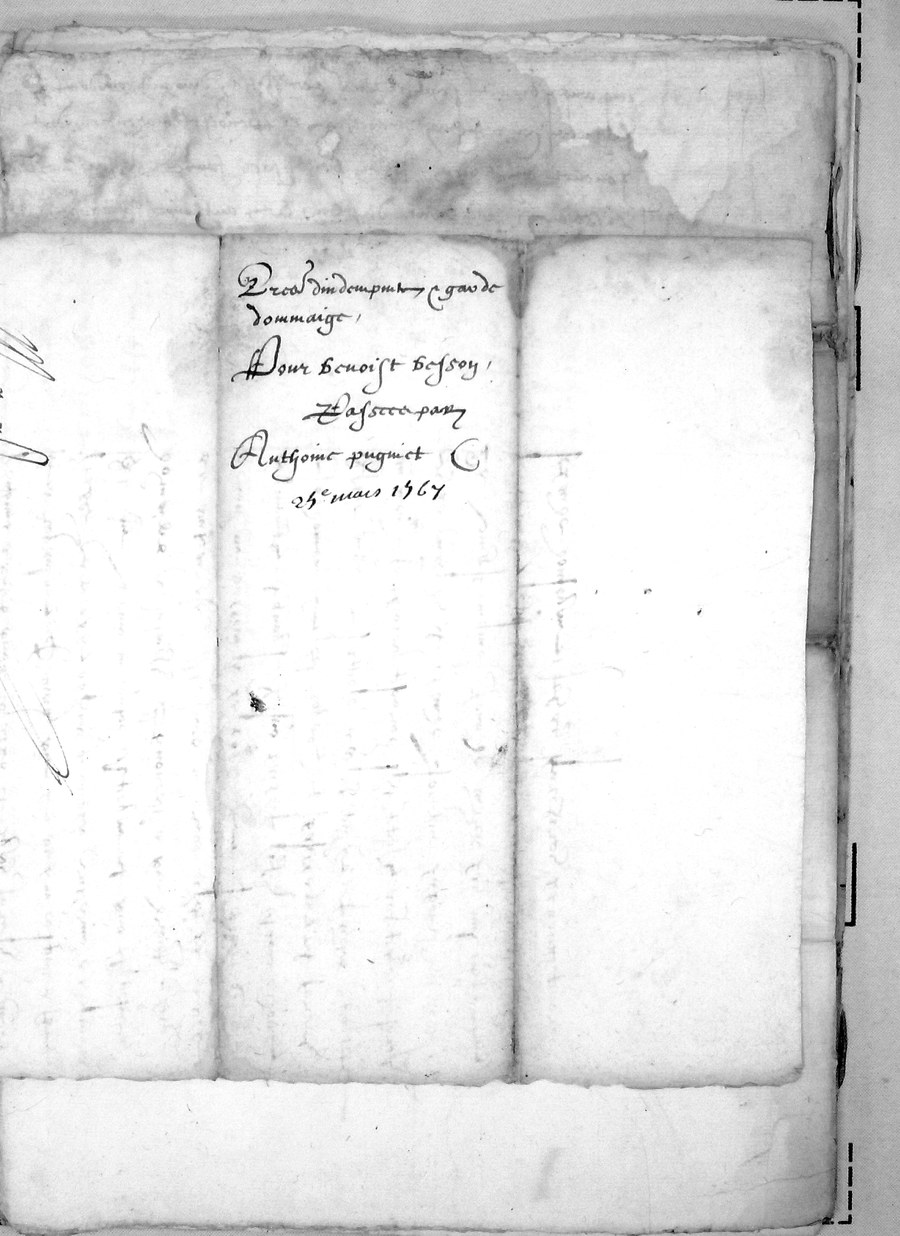 dindempnite & garde
dommaige,
Pour benoist besson,
Passee par
Anthoine pugniet
25e mars 1567